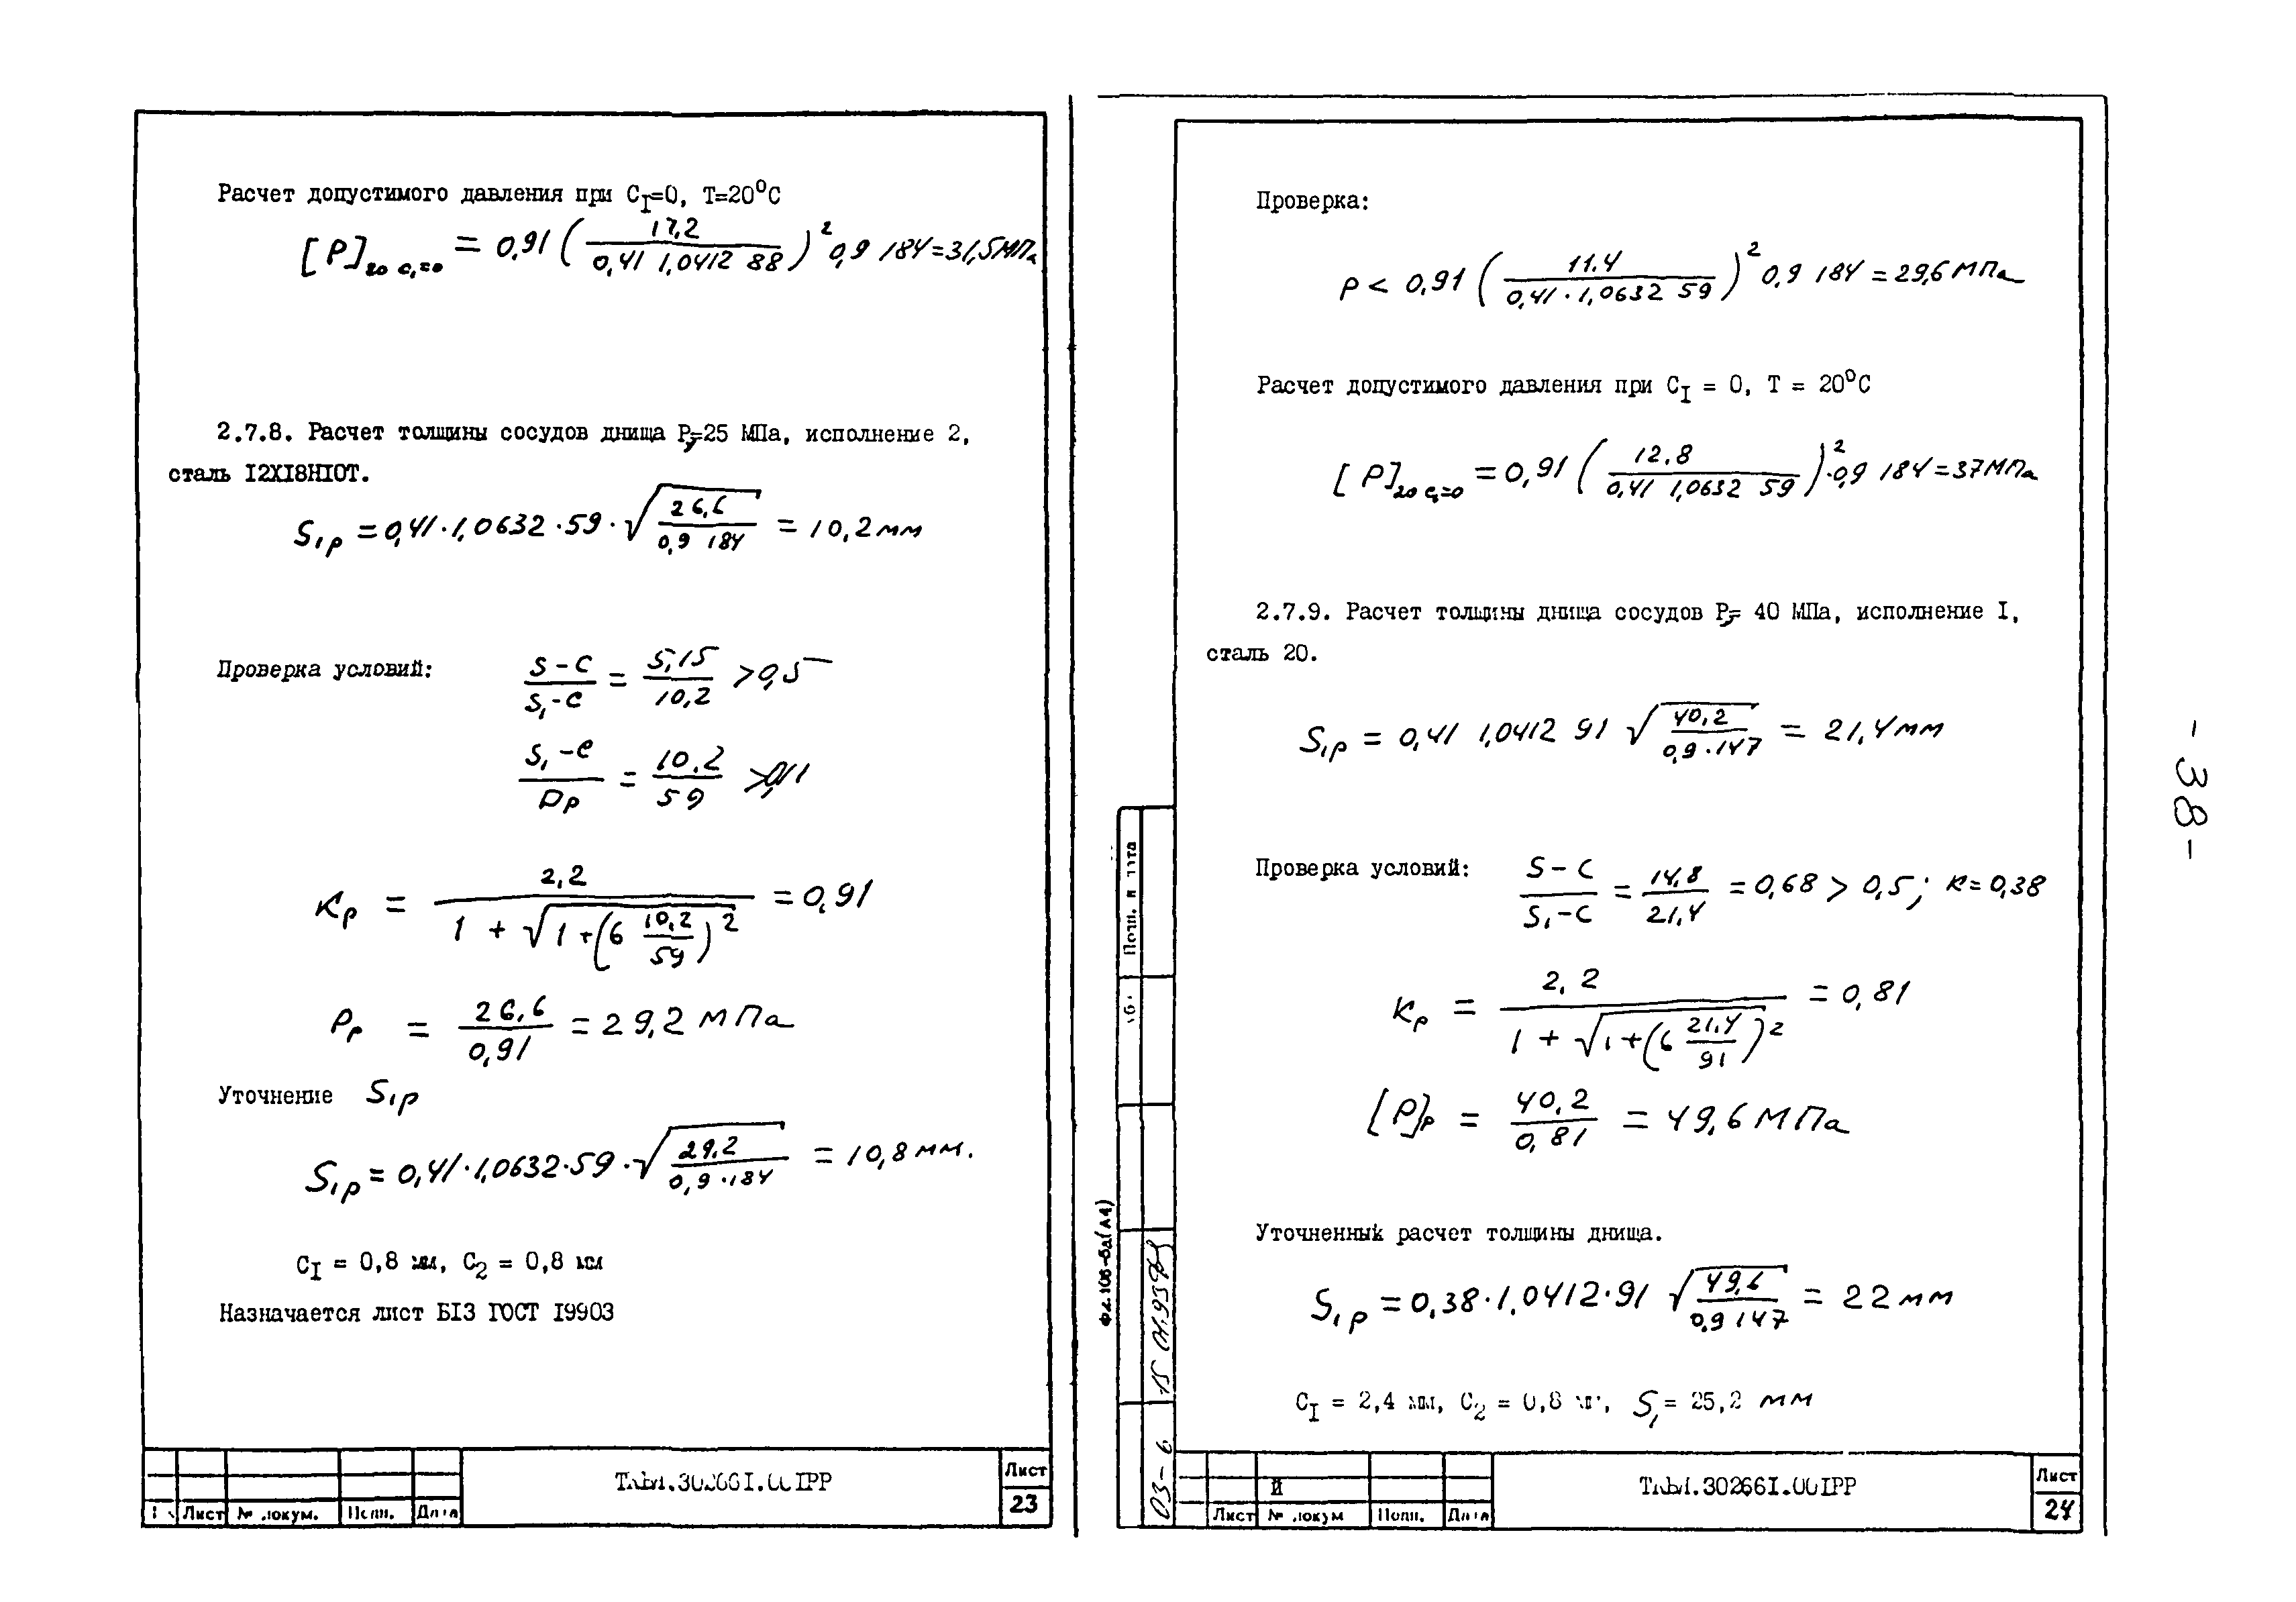 Расчет допустимого давления при C_I=0, T=20°C
[P]_20 c₁=0 = 0,91 ( 17,2 / 0,41 1,0412 88 )² 0,9 184 = 31,5 МПа
2.7.8. Расчет толщины сосудов днища Pу=25 МПа, исполнение 2,
сталь I2XI8HI0T.
S₁p = 0,41 · 1,0632 · 59 · √(26,6 / 0,9 184) = 10,2 мм
Проверка условий: S-C / S₁-C = 5,15 / 10,2 > 0,5
S₁-C / Dp = 10,2 / 59 > 0,11
Kp = 2,2 / 1 + √(1 + (6 10,2/59)²) = 0,91
Pp = 26,6 / 0,91 = 29,2 МПа
Уточнение S₁p
S₁p = 0,41 · 1,0632 · 59 · √(29,2 / 0,9 · 184) = 10,8 мм.
C_I = 0,8 мм, C₂ = 0,8 мм
Назначается лист БI3 ГОСТ I9903
Лист
Лист № докум. Подп. Дата
23
Проверка:
P < 0,91 ( 11.4 / 0,41 · 1,0632 59 )² 0,9 184 = 29,6 МПа
Расчет допустимого давления при C_I = 0, T = 20°C
[P]_20 c₁=0 = 0,91 ( 12,8 / 0,41 1,0632 59 )² · 0,9 184 = 37 МПа
2.7.9. Расчет толщины днища сосудов Pу= 40 МПа, исполнение I,
сталь 20.
S₁p = 0,41 1,0412 91 √(40,2 / 0,9 · 147) = 21,4 мм
Проверка условий: S-C / S₁-C = 14,8 / 21,4 = 0,68 > 0,5; K = 0,38
Kp = 2,2 / 1 + √(1 + (6 21,4/91)²) = 0,81
[P]p = 40,2 / 0,81 = 49,6 МПа
Уточненный расчет толщины днища.
S₁p = 0,38 · 1,0412 · 91 √(49,6 / 0,9 147) = 22 мм
C_I = 2,4 мм, C₂ = 0,8 мм, S₁ = 25,2 мм
Лист
й
Лист № докум Подп. Дата
24
Ф2.106-5а(А4)
-38-